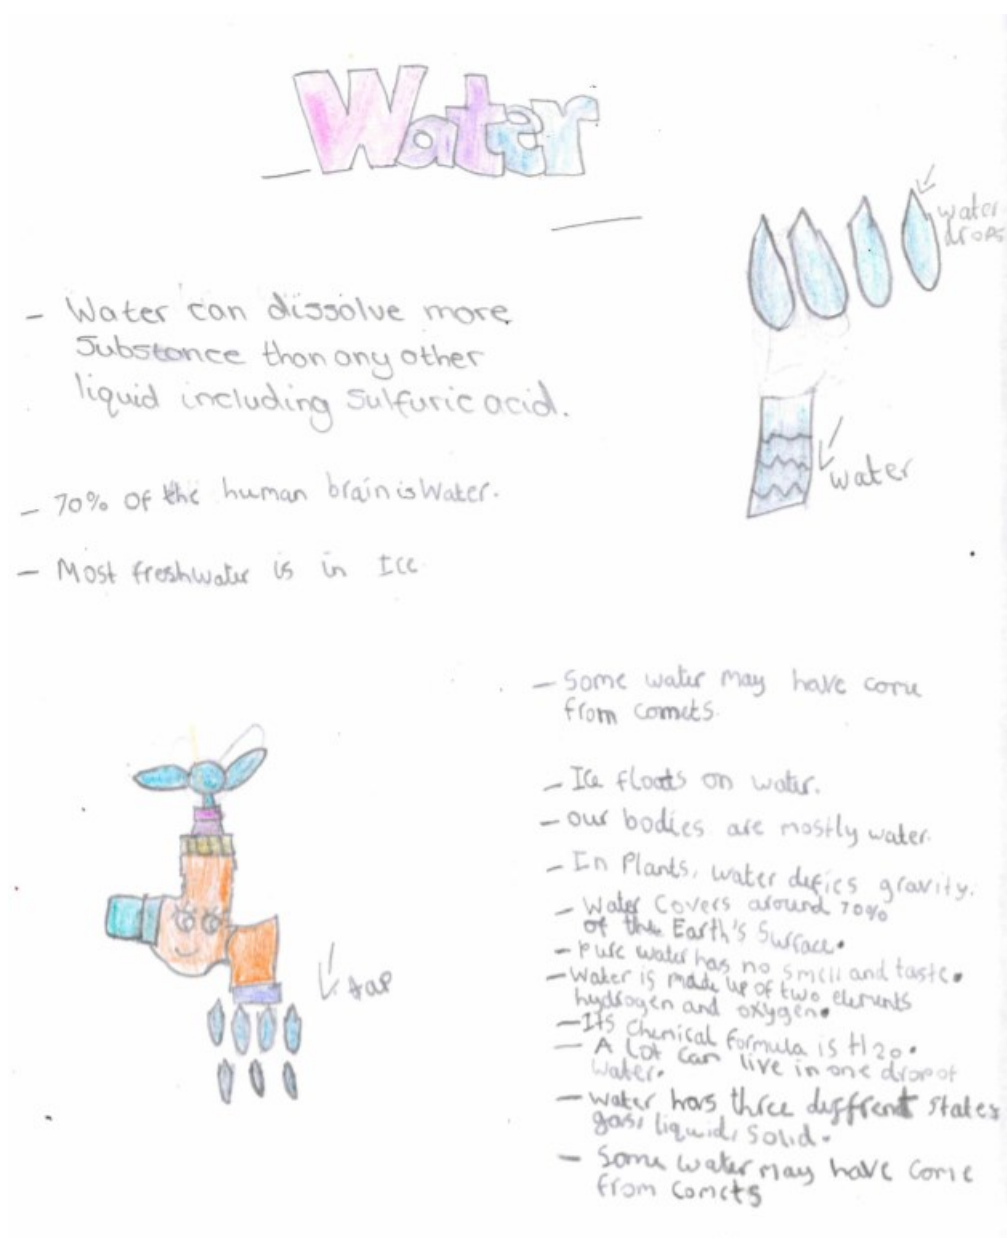 Water
water
drops
- Water can dissolve more
Substance than any other
liquid including Sulfuric acid.
water
- 70% of the human brain is Water.
- Most freshwater is in Ice
- Some water may have come
from comets.
- Ice floats on water.
- our bodies are mostly water.
- In Plants, water defies gravity.
- Water Covers around 70%
of the Earth's Surface.
- pure water has no smell and taste.
- Water is made up of two elements
hydrogen and oxygen.
- Its Chemical formula is H2O.
- A lot can live in one drop of
water.
- water has three diffrent states
gas, liquid, solid.
- Some water may have come
from comets
tap